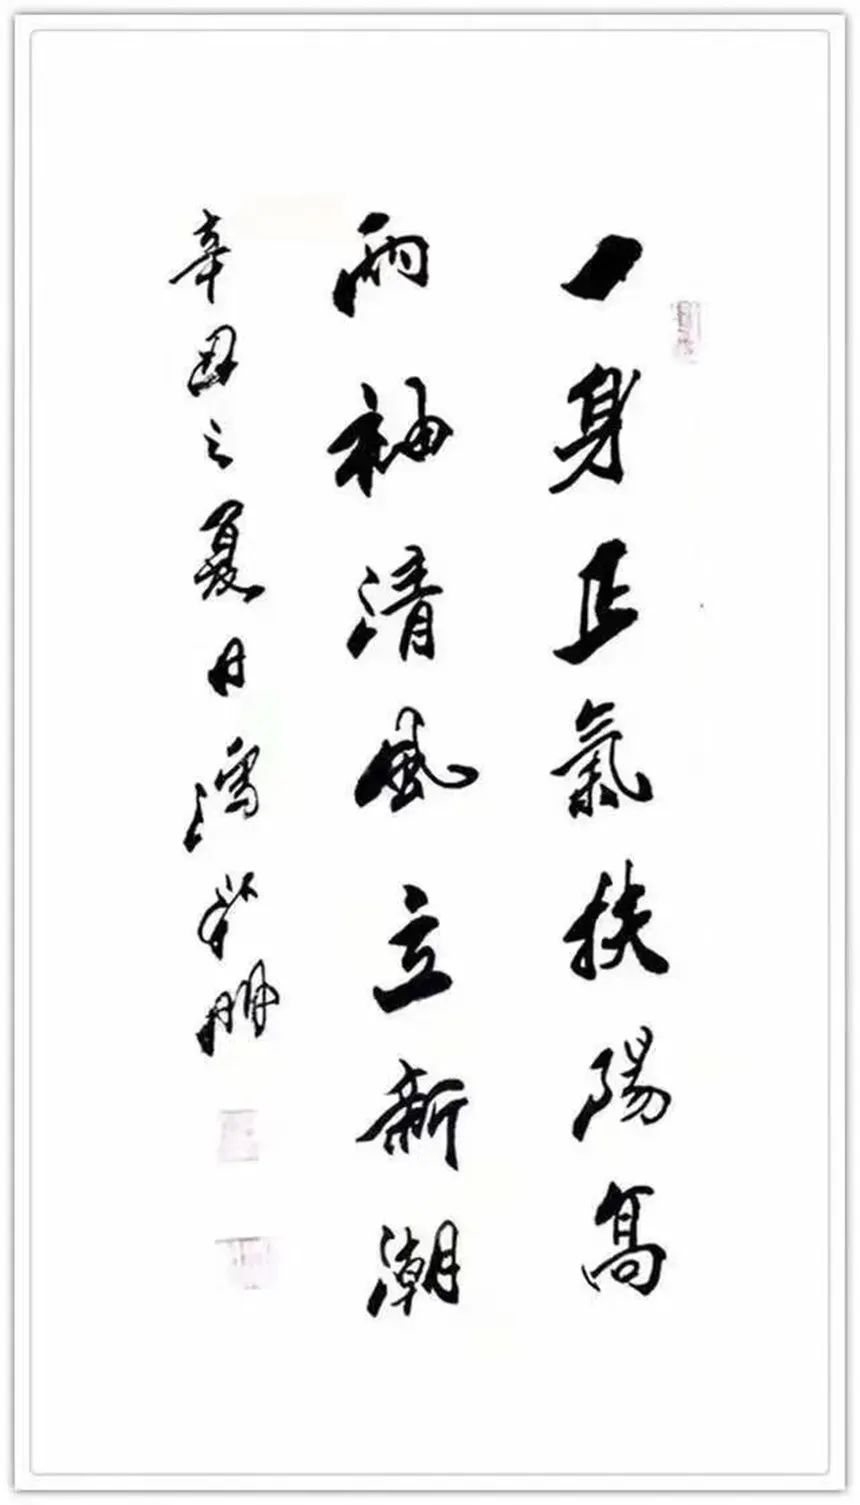 一身正氣扶陽高
兩袖清風立新潮
辛丑之夏月